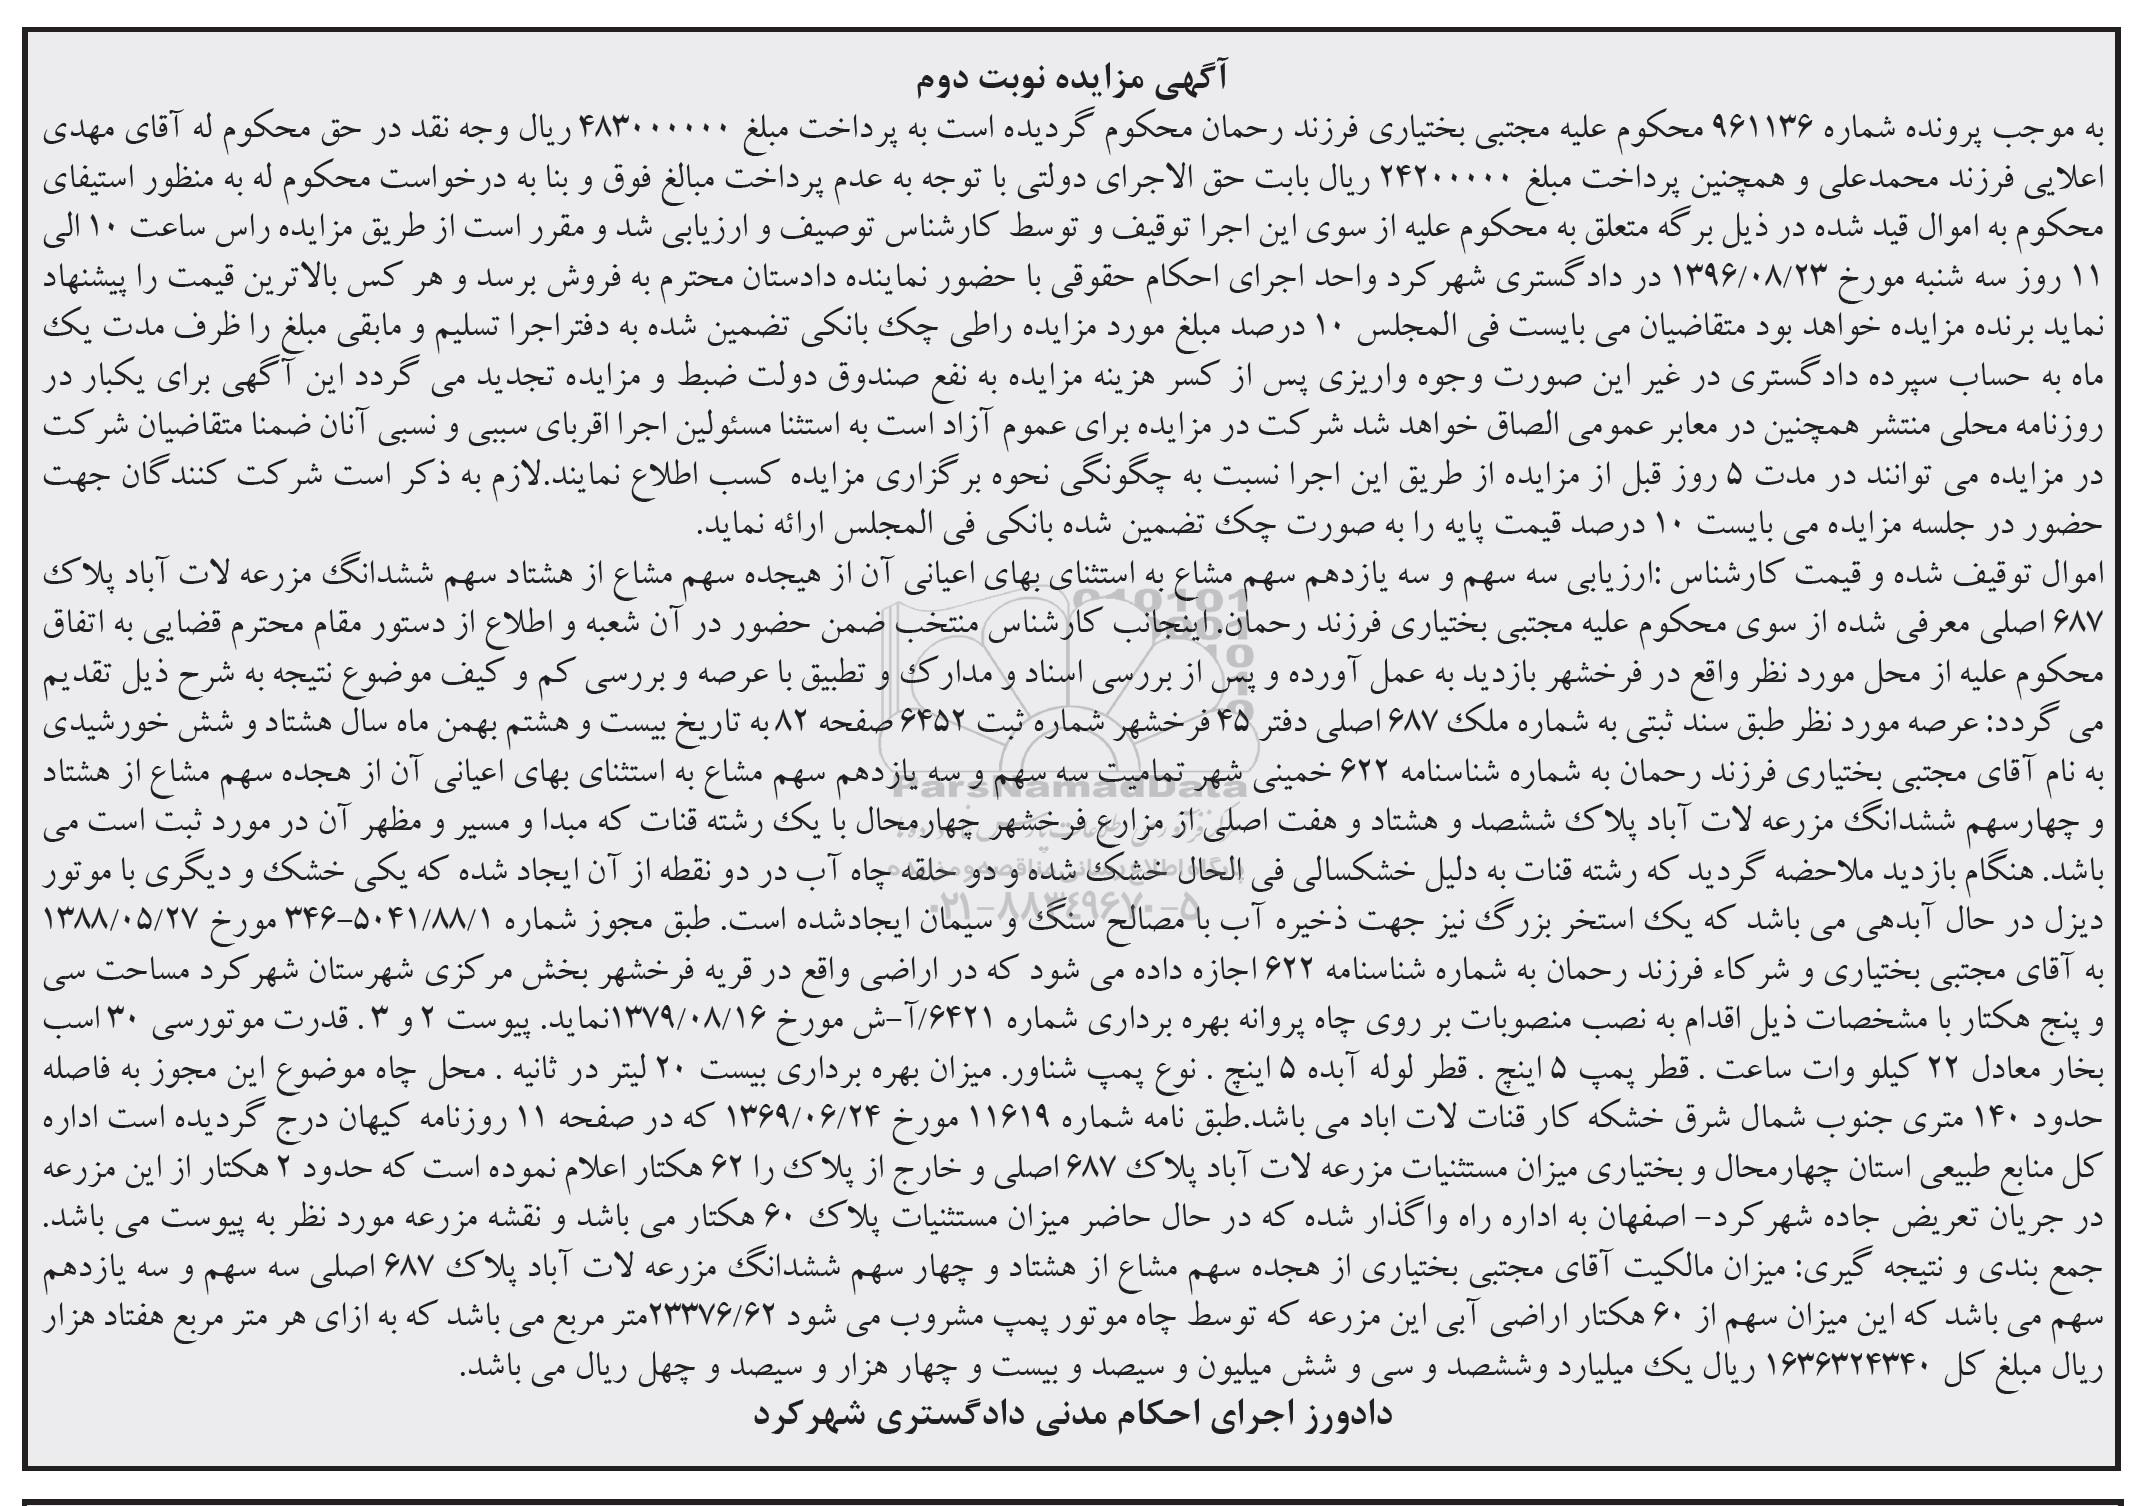 آگهی مزایده نوبت دوم
به موجب پرونده شماره ۹۶۱۱۳۶ محکوم علیه مجتبی بختیاری فرزند رحمان محکوم گردیده است به پرداخت مبلغ ۴۸۳۰۰۰۰۰۰ ریال وجه نقد در حق محکوم له آقای مهدی
اعلایی فرزند محمدعلی و همچنین پرداخت مبلغ ۲۴۲۰۰۰۰۰ ریال بابت حق الاجرای دولتی با توجه به عدم پرداخت مبالغ فوق و بنا به درخواست محکوم له به منظور استیفای
محکوم به اموال قید شده در ذیل برگه متعلق به محکوم علیه از سوی این اجرا توقیف و توسط کارشناس توصیف و ارزیابی شد و مقرر است از طریق مزایده راس ساعت ۱۰ الی
۱۱ روز سه شنبه مورخ ۱۳۹۶/۰۸/۲۳ در دادگستری شهرکرد واحد اجرای احکام حقوقی با حضور نماینده دادستان محترم به فروش برسد و هر کس بالاترین قیمت را پیشنهاد
نماید برنده مزایده خواهد بود متقاضیان می بایست فی المجلس ۱۰ درصد مبلغ مورد مزایده راطی چک بانکی تضمین شده به دفتراجرا تسلیم و مابقی مبلغ را ظرف مدت یک
ماه به حساب سپرده دادگستری در غیر این صورت وجوه واریزی پس از کسر هزینه مزایده به نفع صندوق دولت ضبط و مزایده تجدید می گردد این آگهی برای یکبار در
روزنامه محلی منتشر همچنین در معابر عمومی الصاق خواهد شد شرکت در مزایده برای عموم آزاد است به استثنا مسئولین اجرا اقربای سببی و نسبی آنان ضمنا متقاضیان شرکت
در مزایده می توانند در مدت ۵ روز قبل از مزایده از طریق این اجرا نسبت به چگونگی نحوه برگزاری مزایده کسب اطلاع نمایند.لازم به ذکر است شرکت کنندگان جهت
حضور در جلسه مزایده می بایست ۱۰ درصد قیمت پایه را به صورت چک تضمین شده بانکی فی المجلس ارائه نماید.
اموال توقیف شده و قیمت کارشناس :ارزیابی سه سهم و سه یازدهم سهم مشاع به استثنای بهای اعیانی آن از هیجده سهم مشاع از هشتاد سهم ششدانگ مزرعه لات آباد پلاک
۶۸۷ اصلی معرفی شده از سوی محکوم علیه مجتبی بختیاری فرزند رحمان. اینجانب کارشناس منتخب ضمن حضور در آن شعبه و اطلاع از دستور مقام محترم قضایی به اتفاق
محکوم علیه از محل مورد نظر واقع در فرخشهر بازدید به عمل آورده و پس از بررسی اسناد و مدارک و تطبیق با عرصه و بررسی کم و کیف موضوع نتیجه به شرح ذیل تقدیم
می گردد: عرصه مورد نظر طبق سند ثبتی به شماره ملک ۶۸۷ اصلی دفتر ۴۵ فرخشهر شماره ثبت ۶۴۵۲ صفحه ۸۲ به تاریخ بیست و هشتم بهمن ماه سال هشتاد و شش خورشیدی
به نام آقای مجتبی بختیاری فرزند رحمان به شماره شناسنامه ۶۲۲ خمینی شهر تمامیت سه سهم و سه یازدهم سهم مشاع به استثنای بهای اعیانی آن از هجده سهم مشاع از هشتاد
و چهارسهم ششدانگ مزرعه لات آباد پلاک ششصد و هشتاد و هفت اصلی از مزارع فرخشهر چهارمحال با یک رشته قنات که مبدا و مسیر و مظهر آن در مورد ثبت است می
باشد. هنگام بازدید ملاحضه گردید که رشته قنات به دلیل خشکسالی فی الحال خشک شده و دو حلقه چاه آب در دو نقطه از آن ایجاد شده که یکی خشک و دیگری با موتور
دیزل در حال آبدهی می باشد که یک استخر بزرگ نیز جهت ذخیره آب با مصالح سنگ و سیمان ایجادشده است. طبق مجوز شماره ۳۴۶-۵۰۴۱/۸۸/۱ مورخ ۱۳۸۸/۰۵/۲۷
به آقای مجتبی بختیاری و شرکاء فرزند رحمان به شماره شناسنامه ۶۲۲ اجازه داده می شود که در اراضی واقع در قریه فرخشهر بخش مرکزی شهرستان شهرکرد مساحت سی
و پنج هکتار با مشخصات ذیل اقدام به نصب منصوبات بر روی چاه پروانه بهره برداری شماره ۶۴۲۱/آ-ش مورخ ۱۳۷۹/۰۸/۱۶نماید. پیوست ۲ و ۳ . قدرت موتورسی ۳۰ اسب
بخار معادل ۲۲ کیلو وات ساعت . قطر پمپ ۵ اینچ . قطر لوله آبده ۵ اینچ . نوع پمپ شناور. میزان بهره برداری بیست ۲۰ لیتر در ثانیه . محل چاه موضوع این مجوز به فاصله
حدود ۱۴۰ متری جنوب شمال شرق خشکه کار قنات لات اباد می باشد.طبق نامه شماره ۱۱۶۱۹ مورخ ۱۳۶۹/۰۶/۲۴ که در صفحه ۱۱ روزنامه کیهان درج گردیده است اداره
کل منابع طبیعی استان چهارمحال و بختیاری میزان مستثنیات مزرعه لات آباد پلاک ۶۸۷ اصلی و خارج از پلاک را ۶۲ هکتار اعلام نموده است که حدود ۲ هکتار از این مزرعه
در جریان تعریض جاده شهرکرد- اصفهان به اداره راه واگذار شده که در حال حاضر میزان مستثنیات پلاک ۶۰ هکتار می باشد و نقشه مزرعه مورد نظر به پیوست می باشد.
جمع بندی و نتیجه گیری: میزان مالکیت آقای مجتبی بختیاری از هجده سهم مشاع از هشتاد و چهار سهم ششدانگ مزرعه لات آباد پلاک ۶۸۷ اصلی سه سهم و سه یازدهم
سهم می باشد که این میزان سهم از ۶۰ هکتار اراضی آبی این مزرعه که توسط چاه موتور پمپ مشروب می شود ۲۳۳۷۶/۶۲متر مربع می باشد که به ازای هر متر مربع هفتاد هزار
ریال مبلغ کل ۱۶۳۶۳۲۴۳۴۰ ریال یک میلیارد وششصد و سی و شش میلیون و سیصد و بیست و چهار هزار و سیصد و چهل ریال می باشد.
دادورز اجرای احکام مدنی دادگستری شهرکرد
ParsNamadData
۰۲۱-۸۸۳۴۹۶۷۰-۵